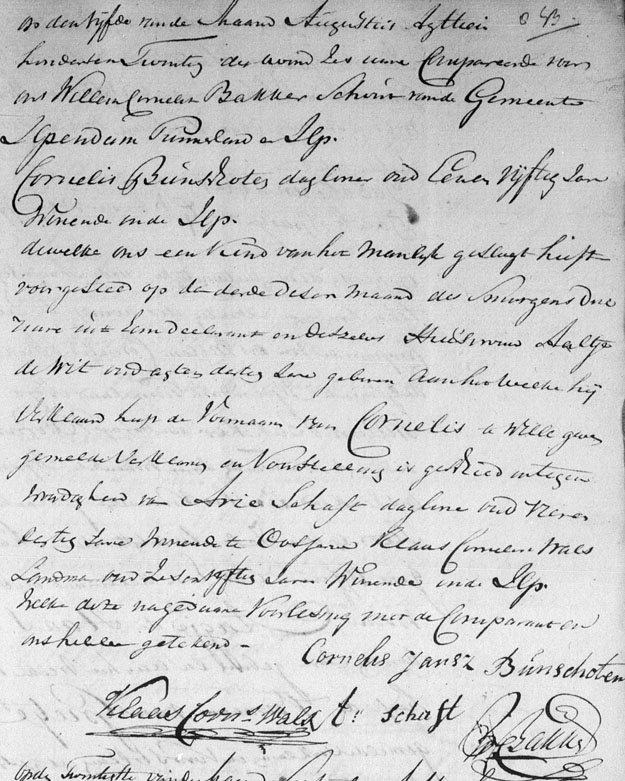 op den Vyfde van de Maand Augustus Agttien
honderd en Twintig des avond Zes uure Compareerde voor
ons Willem Cornelisz Bakker Schout van de Gemeente
Ilpendam Purmerland en Ilp.
Cornelis Bunschoten dagloner oud Eenen vyftig Jare
Wonende in de Ilp.
dewelke ons een Kind van het Manlyk geslagt heeft
voorgesteld op de derde deser Maand des Smorgens Drie
uure uit hem Declarant en deszelvs Huisvrouw Aaltje
de Wit oud agten dertig Jare geboren Aan het welke hij
Verklaard heeft de Voornaam van Cornelis te wille geven
gemelde Verklaring en Voorstelling is geschied in tegen
woordigheid van Arie Schaft dagloner oud Vieren
dertig Jare Wonende te Oostsane Klaas Cornelisz Wals
Landman oud Zes en Vyftig Jaren Wonende in de Ilp.
Welke deze na gedaane Voorlesing met de Comparant en
ons hebben getekend -
Cornelis Jansz Bunschoten
Klaas Corns Wals
A: Schaft
WC Bakker